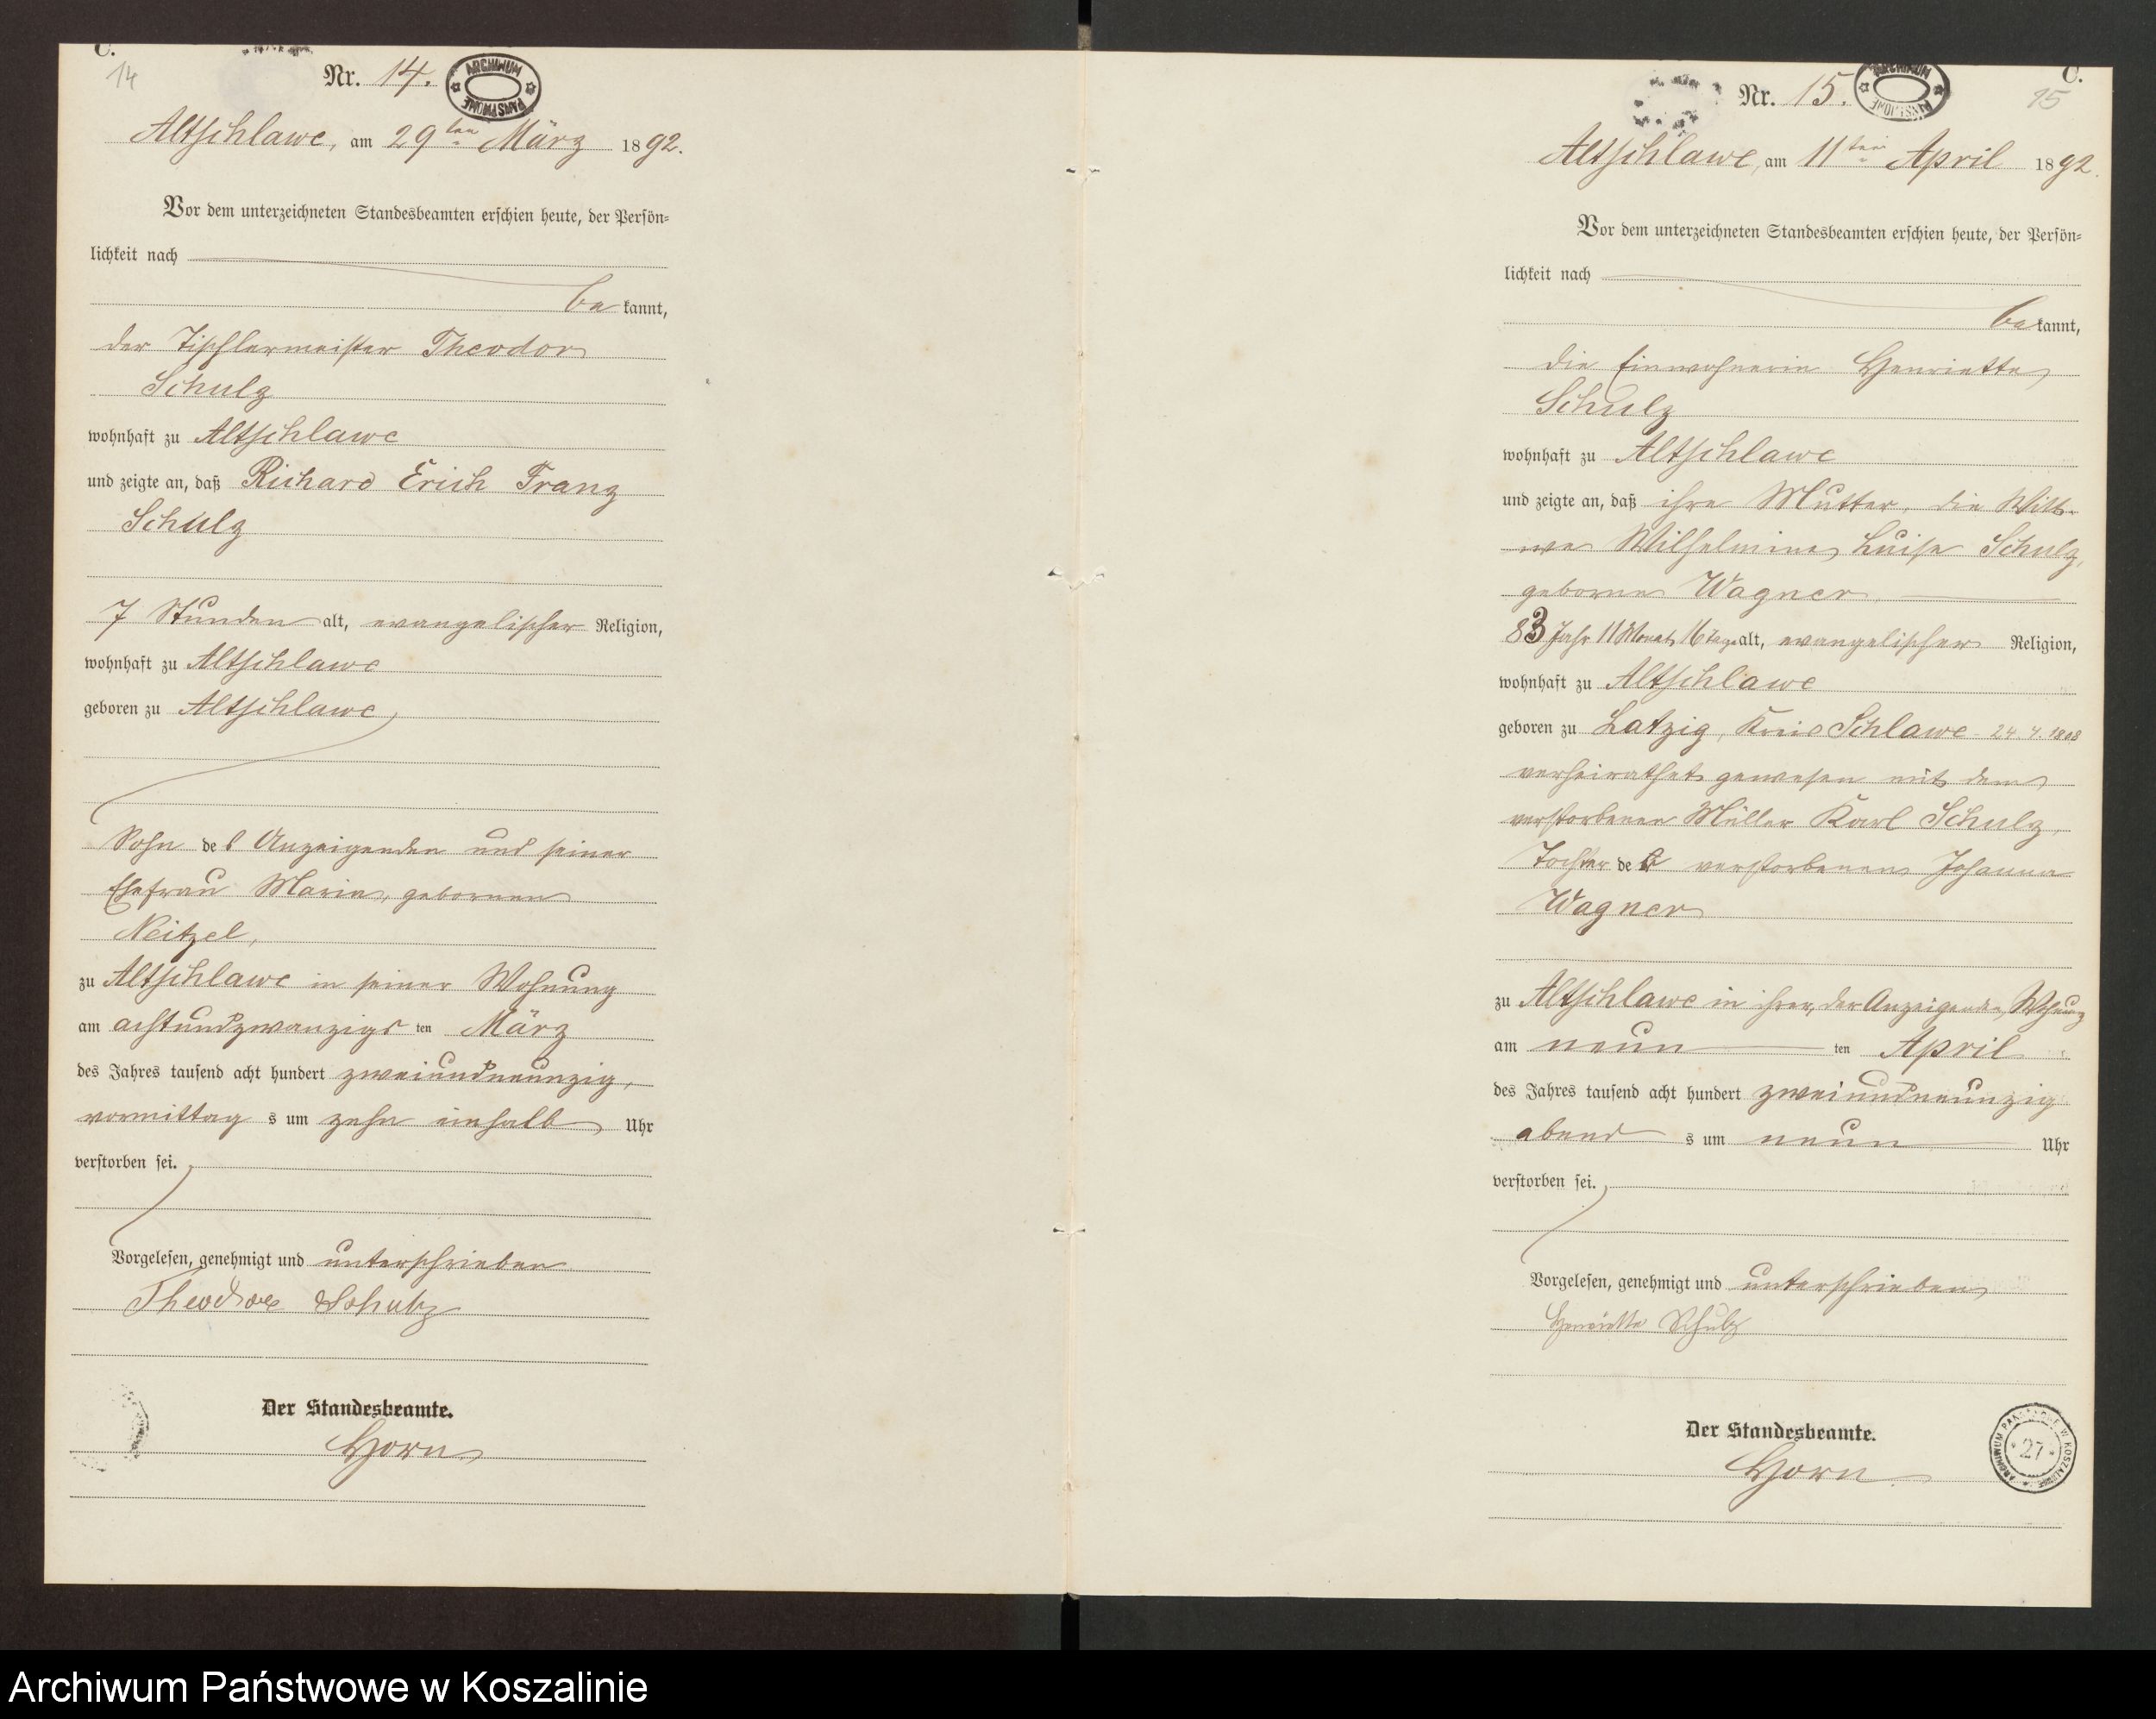 C.
14
Nr. 14.
ARCHIWUM PAŃSTWOWE
Altschlawe, am 29ten März 1892.
Vor dem unterzeichneten Standesbeamten erschien heute, der Persön=
lichkeit nach
be kannt,
der Tischlermeister Theodor
Schulz
wohnhaft zu Altschlawe
und zeigte an, daß Richard Erich Franz
Schulz
7 Stunden alt, evangelischer Religion,
wohnhaft zu Altschlawe
geboren zu Altschlawe,
Sohn des Anzeigenden und seiner
Ehefrau Maria, gebornen
Neitzel,
zu Altschlawe in seiner Wohnung
am achtundzwanzigs ten März
des Jahres tausend acht hundert zweiundneunzig,
vormittag s um zehn einhalb Uhr
verstorben sei.
Vorgelesen, genehmigt und unterschrieben
Theodor Schulz
Der Standesbeamte.
Horn
C.
15
Nr. 15.
ARCHIWUM PAŃSTWOWE
Altschlawe, am 11ten April 1892.
Vor dem unterzeichneten Standesbeamten erschien heute, der Persön=
lichkeit nach
be kannt,
die Einwohnerin Henriette
Schulz
wohnhaft zu Altschlawe
und zeigte an, daß ihre Mutter, die Witt-
we Wilhelmine Luise Schulz,
geborne Wagner,
83 Jahr 11 Monat 16 Tage alt, evangelischer Religion,
wohnhaft zu Altschlawe
geboren zu Latzig, Kreis Schlawe - 24.4.1808
verheirathet gewesen mit dem
verstorbenen Müller Karl Schulz,
Tochter der verstorbenen Johanna
Wagner
zu Altschlawe in ihrer, der Anzeigenden, Wohnung
am neun ten April
des Jahres tausend acht hundert zweiundneunzig
abend s um neun Uhr
verstorben sei.
Vorgelesen, genehmigt und unterschrieben
Henriette Schulz
Der Standesbeamte.
Horn
ARCHIWUM PAŃSTWOWE W KOSZALINIE
27
Archiwum Państwowe w Koszalinie